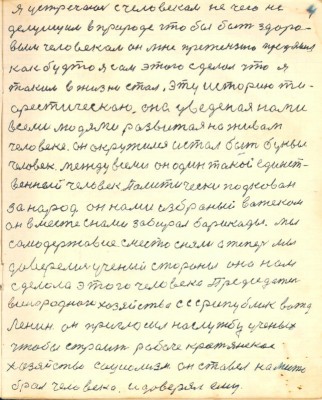 я устречаюс счеловеком не чего не
делующим в природе чтобы быт здоро-
вым человеком он мне притензию предявил
как будто я сам этого сделал что я
таким в жизни стал, эту историю ти-
орестическою, она уведеная нами
всеми людями развитая на живам
человеке. он окружился и стал быт буквы
человек. между всеми он один такой единст-
венный человек Политически подкован
за народ он нами избраный ватеком
он вместе снами забирал барикады. мы
самодержавие сместо сняли а тепер мы
доверелия ученый стороны она нам
сделала этого человека Председател
виго родного хозяйства ссср републик вожд
Ленин он пригласил на службу ученых
чтобы строит рабоче крестянское
хозяйство социолизм он ставел на место
брал человека. и доверял ему.